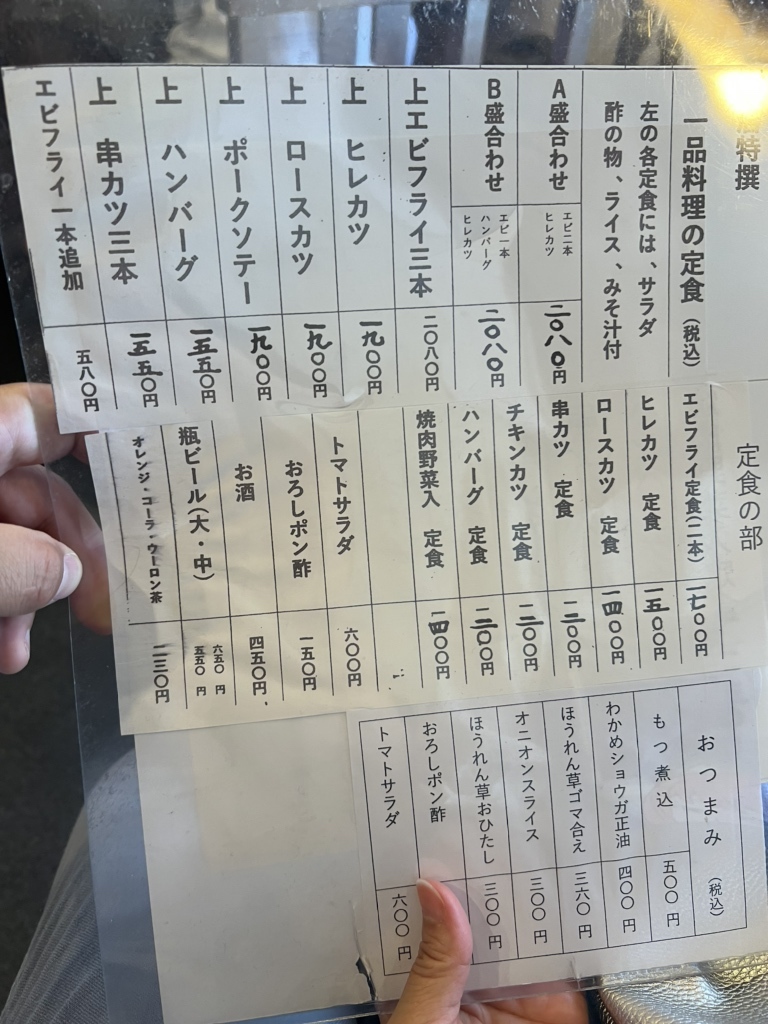 特撰
一品料理の定食(税込)
左の各定食には、サラダ
酢の物、ライス、みそ汁付
A盛合わせ エビ二本 ヒレカツ 二〇八〇円
B盛合わせ エビ一本 ハンバーグ ヒレカツ 二〇八〇円
上エビフライ三本 二〇八〇円
上 ヒレカツ 一九〇〇円
上 ロースカツ 一九〇〇円
上 ポークソテー 一九〇〇円
上 ハンバーグ 一五五〇円
上 串カツ三本 一五五〇円
エビフライ一本追加 五八〇円
定食の部
エビフライ定食(二本) 一七〇〇円
ヒレカツ 定食 一五〇〇円
ロースカツ 定食 一四〇〇円
串カツ 定食 一二〇〇円
チキンカツ 定食 一二〇〇円
ハンバーグ 定食 円
焼肉野菜入 定食 一四〇〇円
トマトサラダ 六〇〇円
おろしポン酢 一五〇円
お酒 四五〇円
瓶ビール(大・中) 六五〇円 五五〇円
オレンジ・コーラ・ウーロン茶 二三〇円
おつまみ (税込)
もつ煮込 五〇〇円
わかめショウガ正油 四〇〇円
ほうれん草ゴマ合え 三六〇円
オニオンスライス 三〇〇円
ほうれん草おひたし 三〇〇円
おろしポン酢
トマトサラダ 六〇〇円